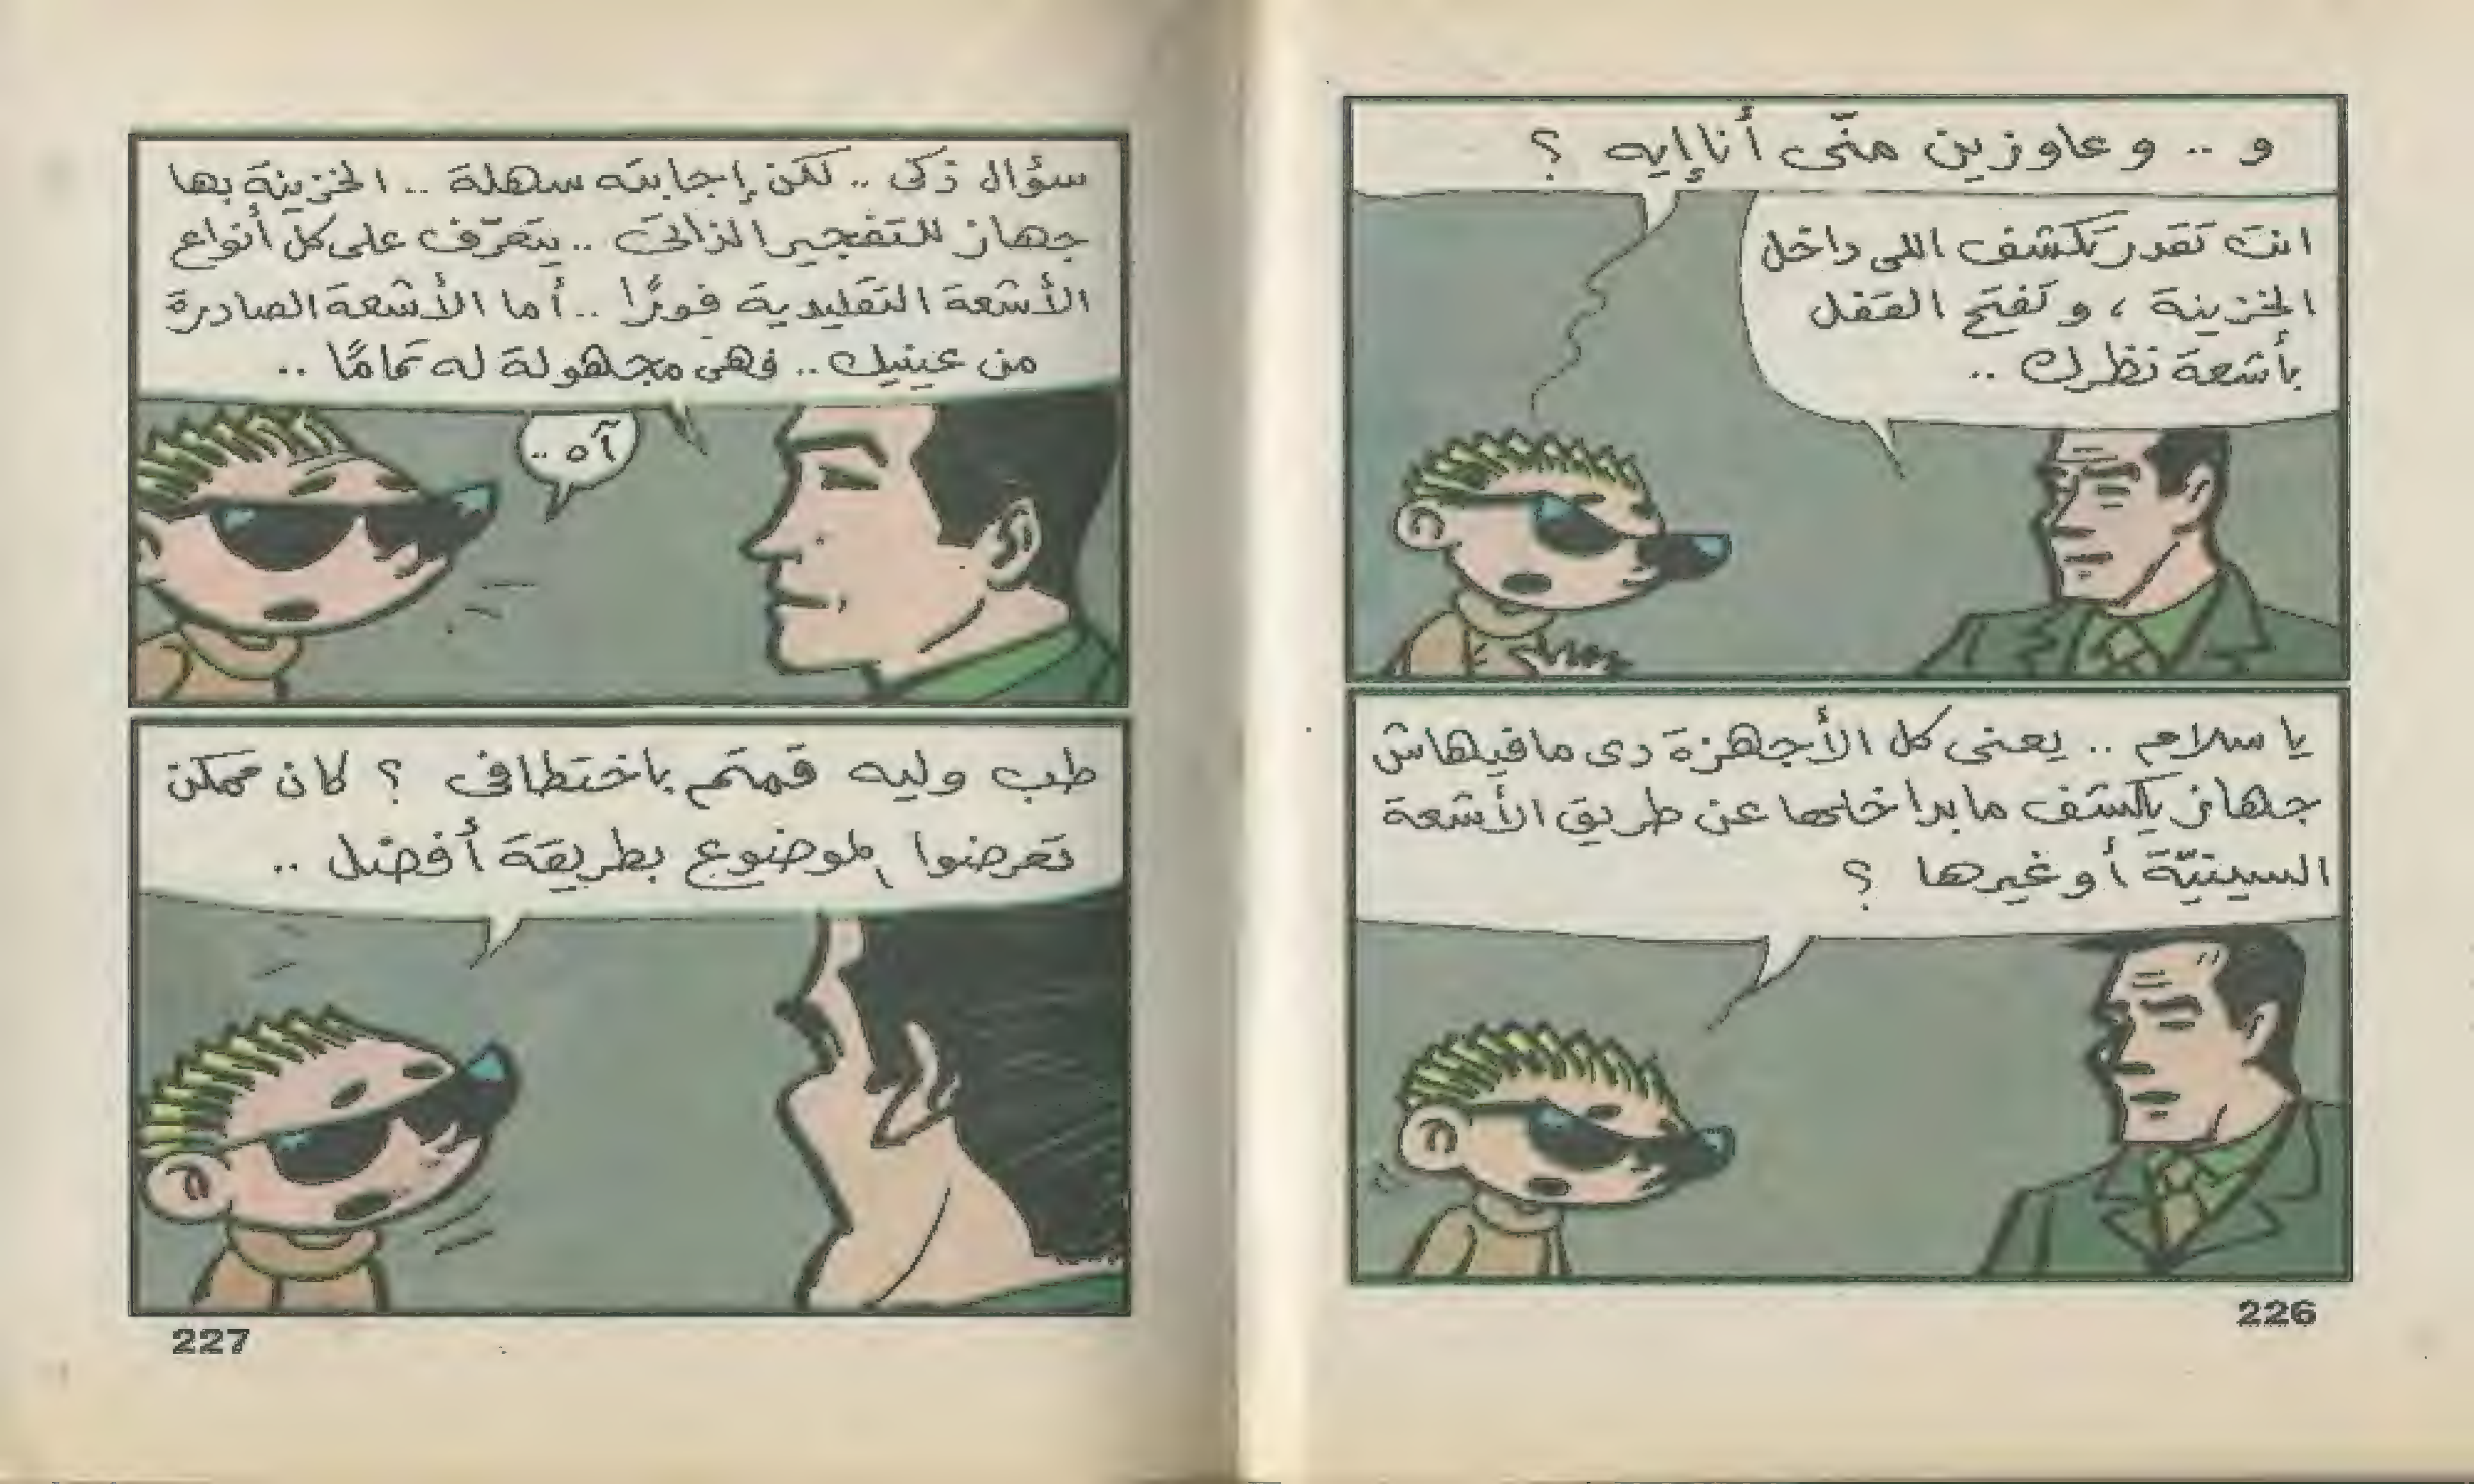 و .. و عاوزين منّى أنا إيه ؟
انت تقدر تكشف اللى داخل
الخزينة ، و تفتح القفل
بأشعة نظرك ..
يا سلام .. يعنى كل الأجهزة دى مافيهاش
جهاز يكشف ما بداخلها عن طريق الأشعة
السينيّة أو غيرها ؟
226
سؤال ذكى .. لكن إجابته سهلة .. الخزينة بها
جهاز للتفجير الذاتى .. يتعرّف على كل أنواع
الأشعة التقليدية فورًا .. أما الأشعة الصادرة
من عينيك .. فهى مجهولة له تمامًا ..
آه ..
طب وليه قمتم باختطافى ؟ كان ممكن
تعرضوا الموضوع بطريقة أفضل ..
227